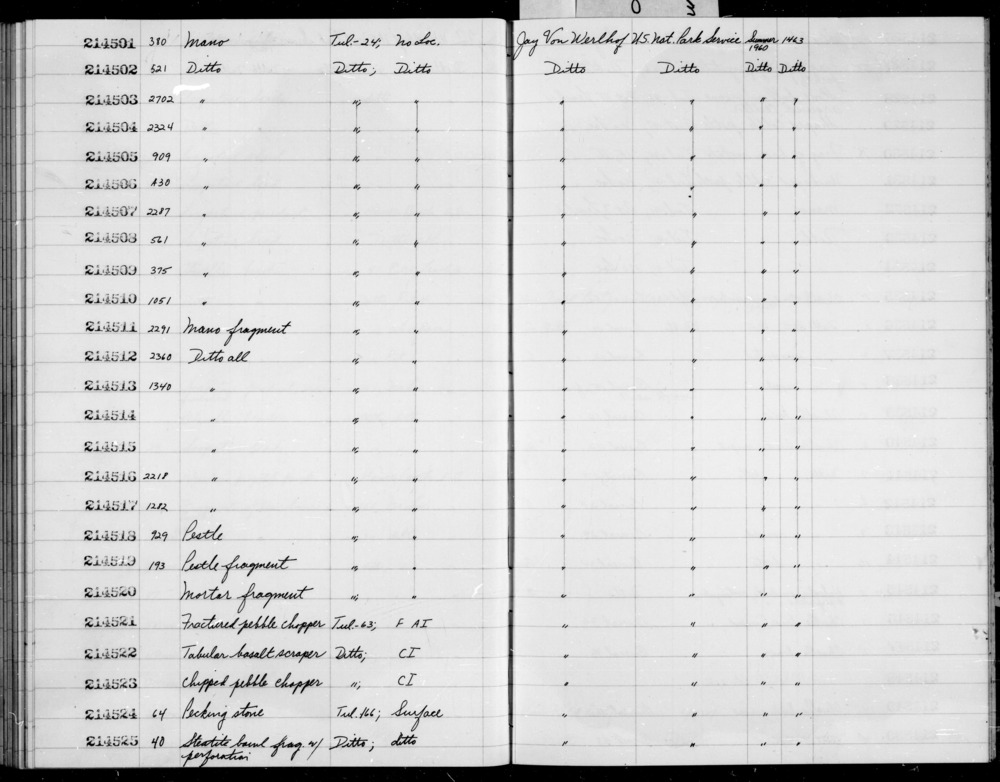 0 3
214501 380 Mano Tul-24; no Loc. Jay Von Werlhof U.S. Nat. Park Service Summer 1960 1463
214502 321 Ditto Ditto; Ditto Ditto Ditto Ditto Ditto
214503 2702 " "; " " " " "
214504 2324 " "; " " " " "
214505 909 " "; " " " " "
214506 A30 " "; " " " " "
214507 2287 " "; " " " " "
214508 561 " "; " " " " "
214509 375 " "; " " " " "
214510 1051 " "; " " " " "
214511 2291 Mano fragment "; " " " " "
214512 2360 Ditto all "; " " " " "
214513 1340 " "; " " " " "
214514 " "; " " " " "
214515 " "; " " " " "
214516 2218 " "; " " " " "
214517 1282 " "; " " " " "
214518 929 Pestle "; " " " " "
214519 193 Pestle fragment "; " " " " "
214520 Mortar fragment "; " " " " "
214521 Fractured pebble chopper Tul-63; F AI " " " "
214522 Tabular basalt scraper Ditto; CI " " " "
214523 Chipped pebble chopper "; CI " " " "
214524 64 Pecking stone Tul.166; Surface " " " "
214525 40 Steatite bowl frag. w/ Ditto; ditto " " " "
perforation